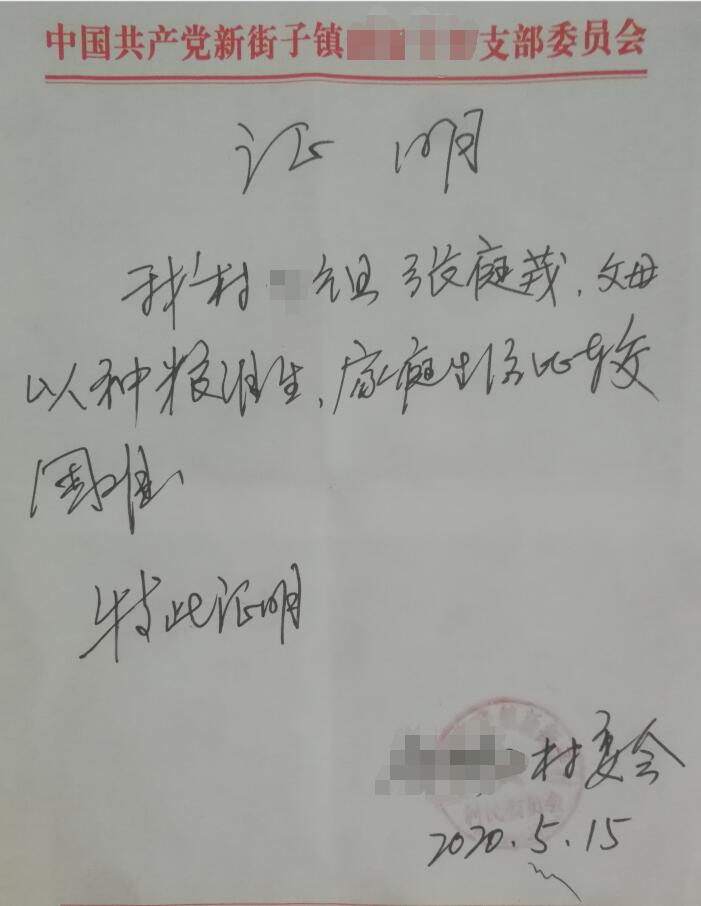 中国共产党新街子镇 支部委员会
证 明
我村 组张庭茂，父母
以种粮为生，家庭生活比较
困难
特此证明
村委会
2020.5.15
村民委员会